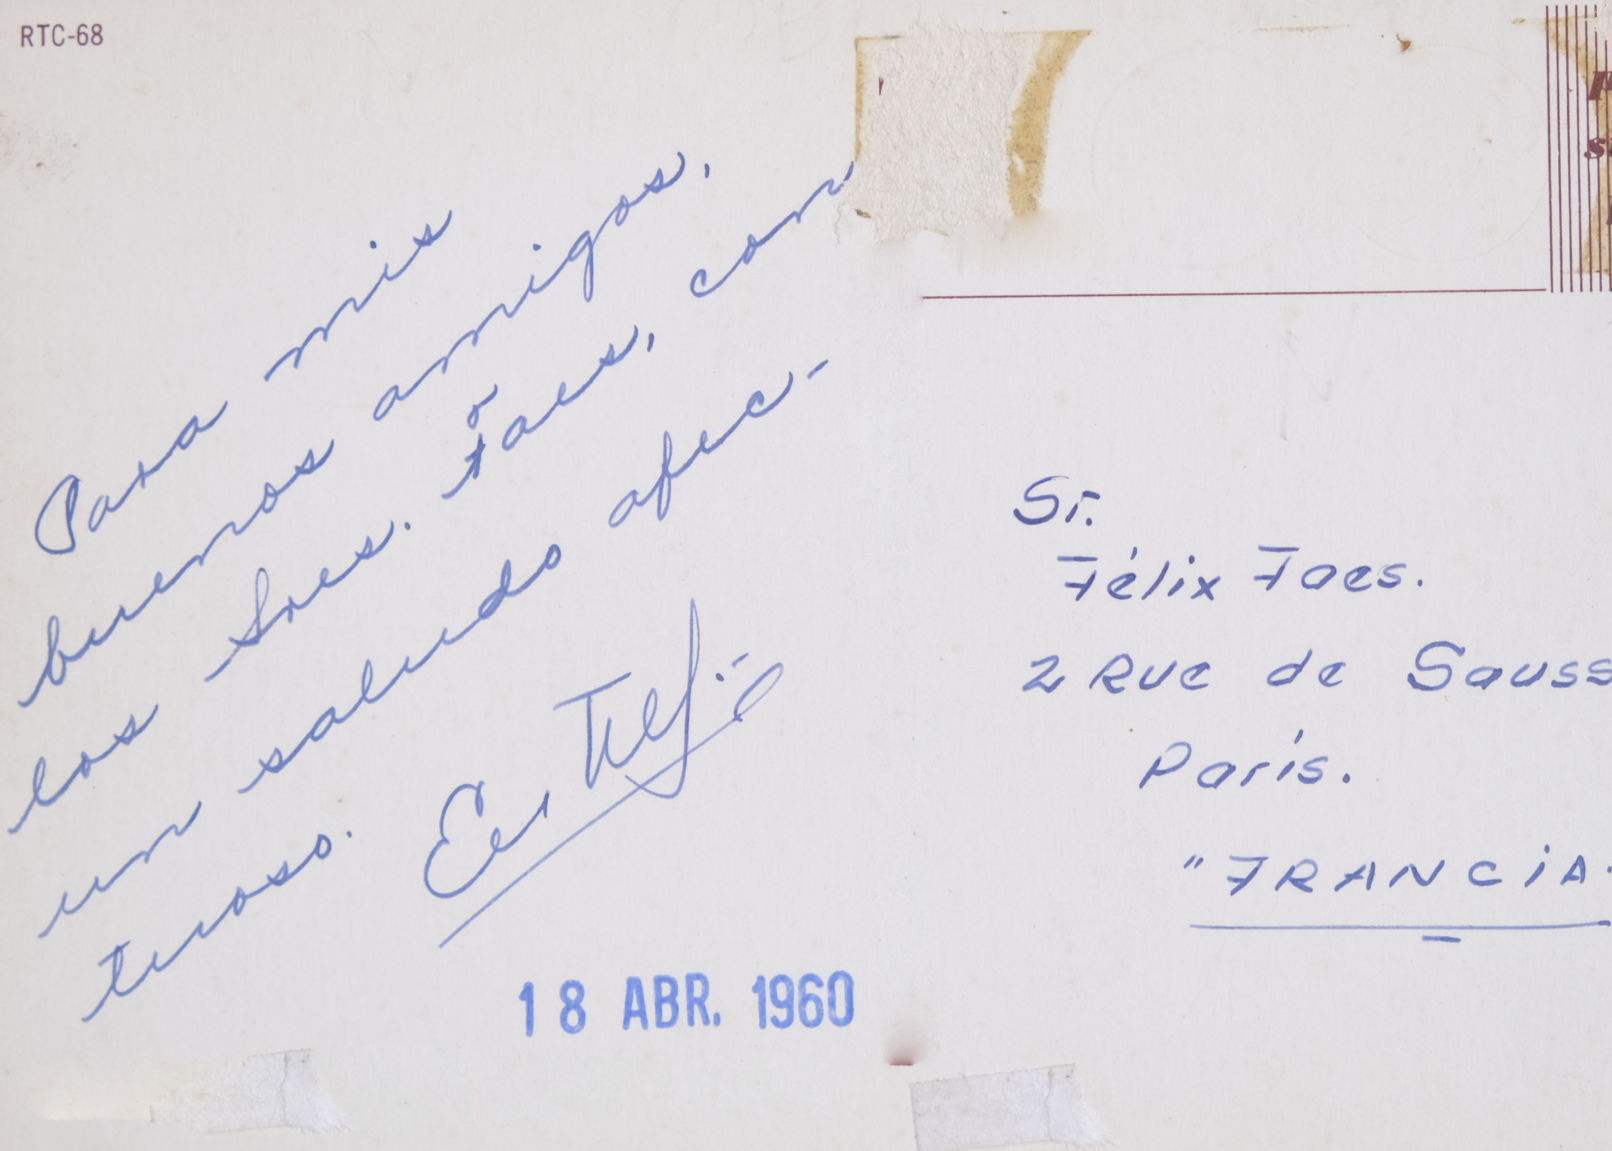 RTC-68
Para mis
buenos amigos,
los Sres. Faes, con
un saludo afec-
tuoso.
18 ABR. 1960
Sr.
Félix Faes.
2 Rue de Sauss
París.
"FRANCIA.